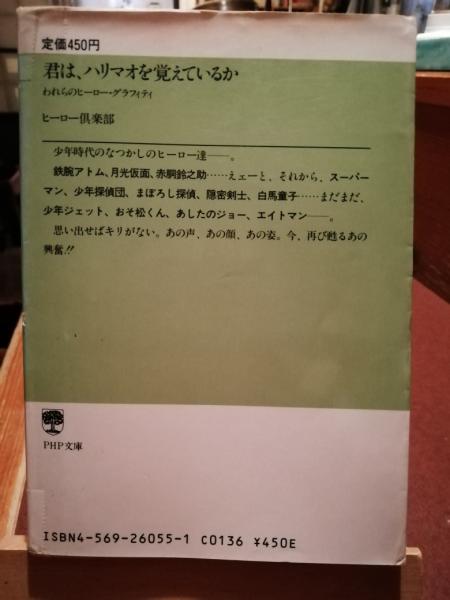 定価450円
君は、ハリマオを覚えているか
われらのヒーロー・グラフィティ
ヒーロー倶楽部
少年時代のなつかしのヒーロー達——。
鉄腕アトム、月光仮面、赤胴鈴之助……えェーと、それから、スーパー
マン、少年探偵団、まぼろし探偵、隠密剣士、白馬童子……まだまだ、
少年ジェット、おそ松くん、あしたのジョー、エイトマン——。
思い出せばキリがない。あの声、あの顔、あの姿。今、再び甦るあの
興奮!!
PHP文庫
ISBN4-569-26055-1 C0136 ¥450E